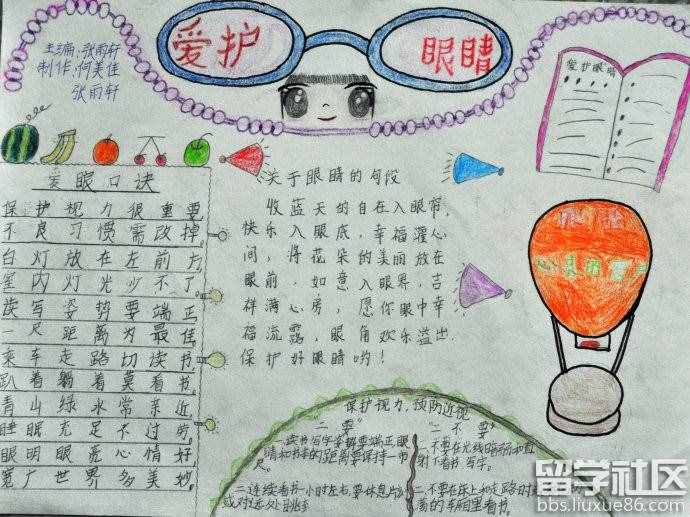 爱护 眼睛
主编:张雨轩
制作:何美佳
张雨轩
爱护眼睛
爱眼口诀
保护视力很重要
不良习惯需改掉
台灯放在左前方
室内灯光少不了
读写姿势要端正
一尺距离为最佳
乘车走路切读书
趴着躺着莫看书
青山绿水常亲近
睡眠充足不过劳
眼明眼亮心情好
宽广世界多美妙
关于眼睛的句段
收蓝天的自在入眼帘,
快乐入眼底,幸福灌心
间,将花朵的美丽放在
眼前,如意入眼界,吉
祥满心房,愿你眼中幸
福流露,眼角欢乐溢出,
保护好眼睛哟!
保护视力,预防近视
"二要"
一.读书写字姿势要端正,眼
睛和书本的距离要保持一市
尺。
二连续看书一小时左右,要休息片刻
或对远处眺
"二不要"
一.不要在光线暗弱和直
射下看书、写字。
二.不要在床上和走路时或
荡的车厢里看书。
留学社区
bbs.liuxue86.com